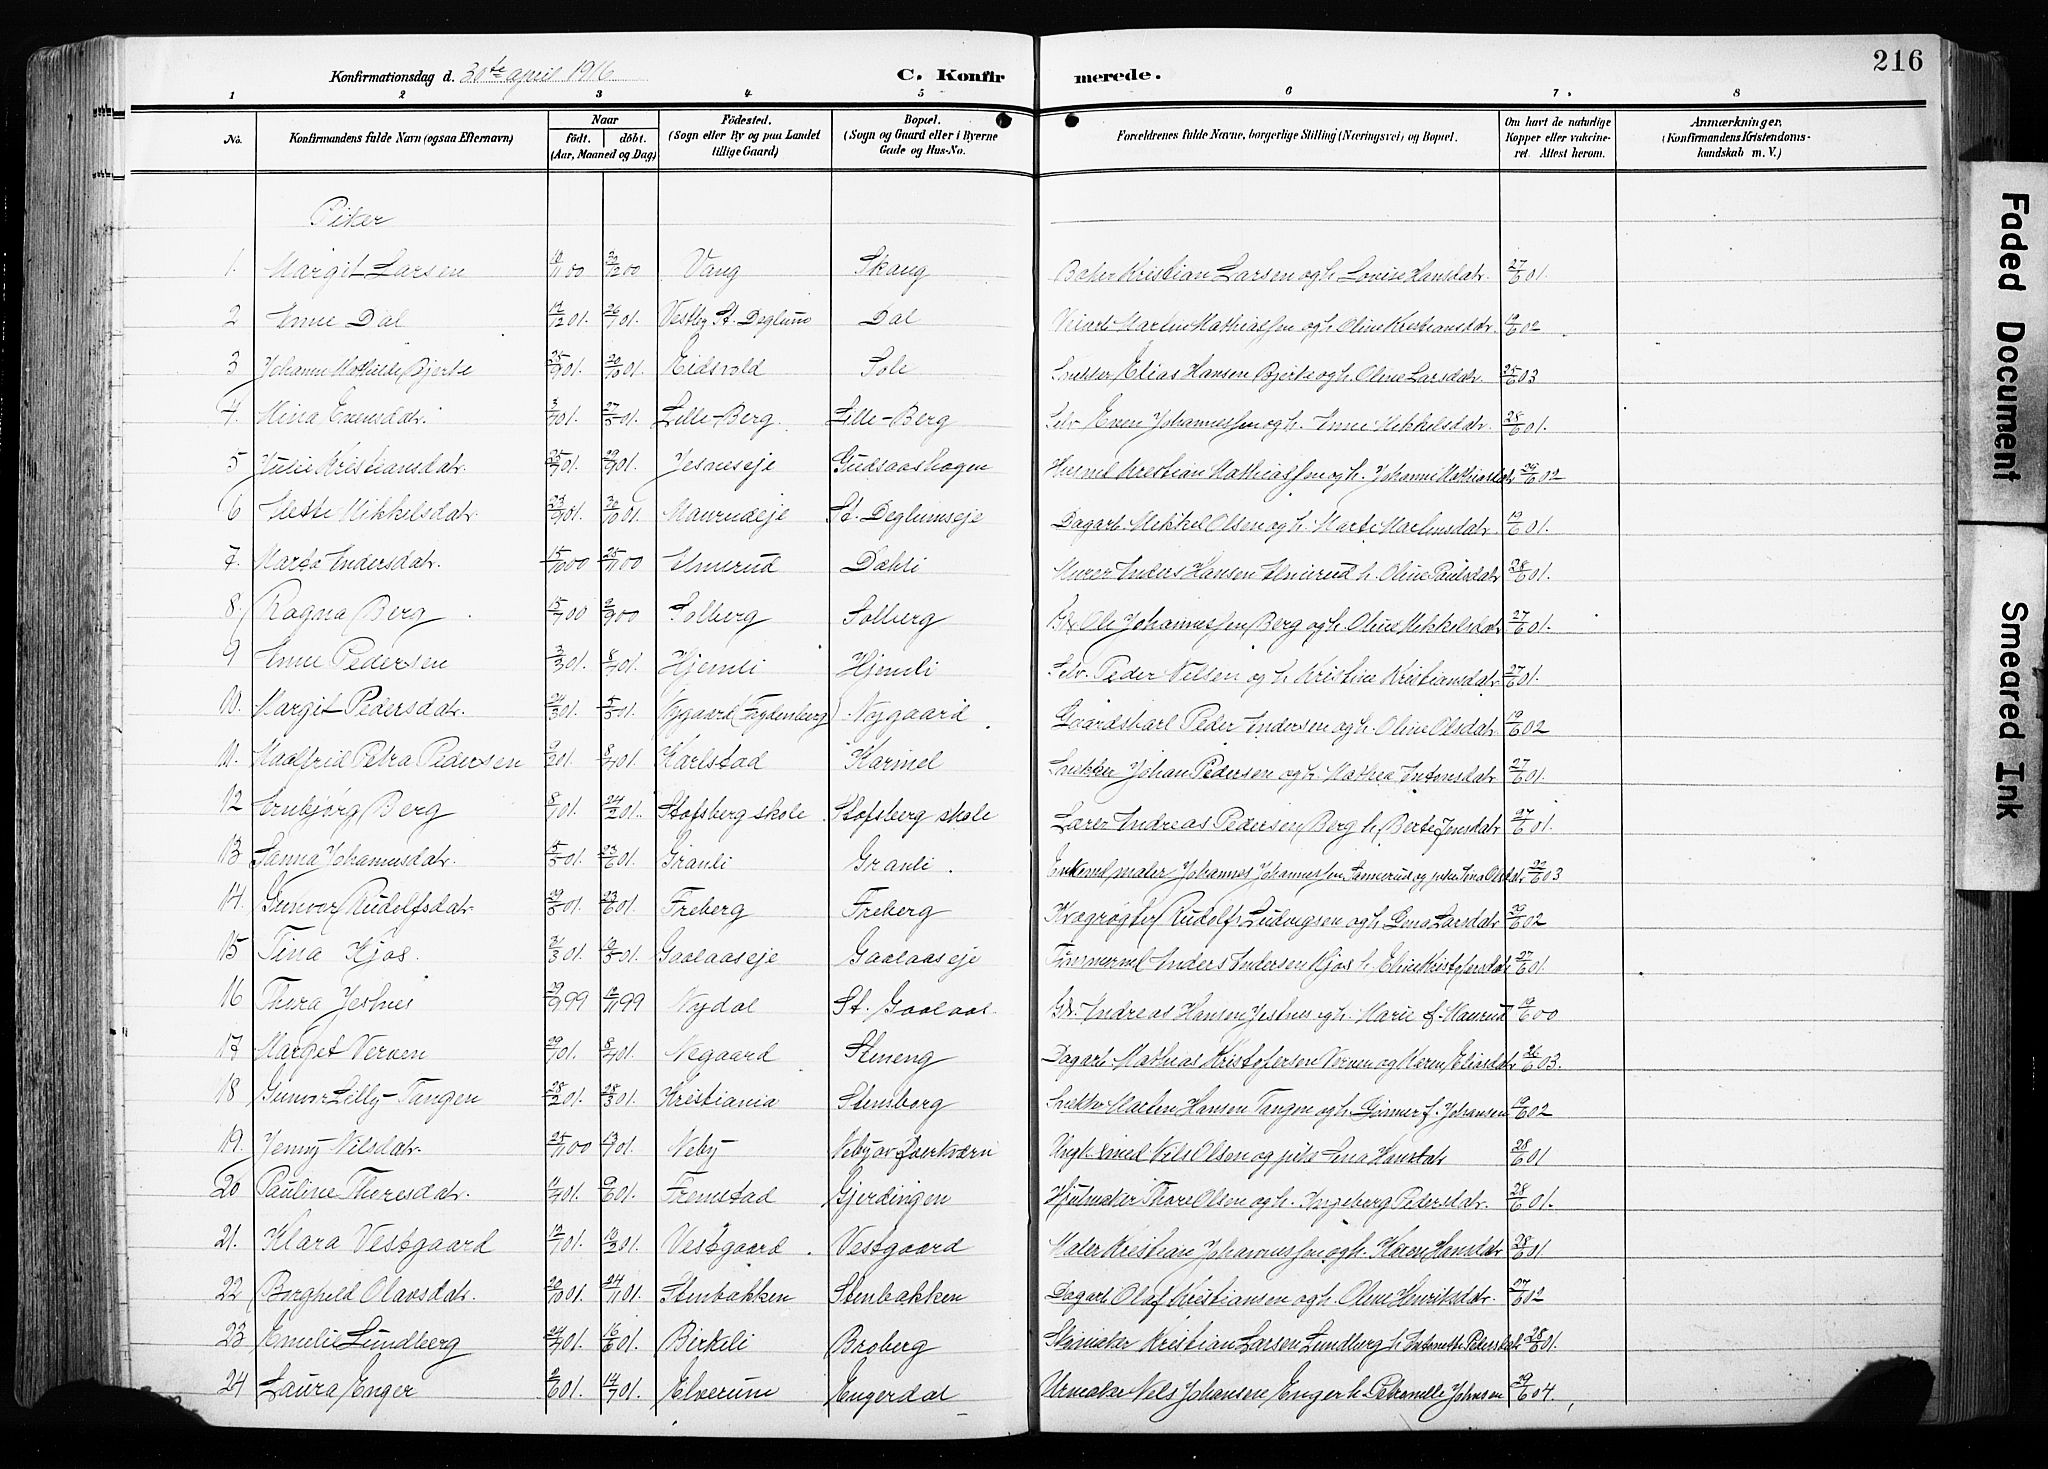 Konfirmationsdag d. 30te april 1916 C. Konfirmerede. 216
1 2 3 4 5 6 7. 8
No. Konfirmandens fulde Navn (ogsaa Efternavn) Naar født. døbt. (Aar, Maaned og Dag) Fødested. (Sogn eller By og paa Landet tillige Gaard) Bopæl. (Sogn og Gaard eller i Byerne Gade og Hus-No. Forældrenes fulde Navne, borgerlige Stilling (Næringsvei) og Bopæl. Om havt de naturlige Kopper eller vakcineret. Attest herom. Anmærkninger. (Konfirmandens Kristendomskundskab m. V.)
Piker
1. Margit Larsen Vang Skaug Kristian Larsen og h. Lovise Hansdatr. 27/6 01.
2 Anne Dal 12/12 01. 26/1 01. Vestby St. Deglum Dal Martin Mathiassen og h. Oline Kristiansdtr. 19/6 02
3 Johanne Mathilde Bjerke 25/9 01. 20/10 01. Eidsvold Sole Snekker Elias Hansen Bjerke og h. Oline Larsdatr. 25/6 03
4. Mina Evensdatr. 27/5 01. Lille-Berg Lille-Berg Selv. Even Johannessen og h. Anne Mikkelsdatr. 28/6 01.
5 Julie Kristiansdatr. 29/9 01. Jesneseje Gudsaashagen Husmd Kristian Mathiassen og h. Johanne Mathiasdatr 24/6 02
6 Mette Mikkelsdatr. Maurudeje St. Deglumseje Dagarb. Mikkel Olsen og h. Marte Martinsdatr. 19/6 01.
7. Marte Andersdatr. 15/10 00 25/11 00 Almerud Dahli Murer Anders Hansen Almerud h. Oline Paulsdatr 28/6 01.
8. Ragna Berg 15/7 00 2/9 00 Solberg Solberg Gbr. Ole Johannessen Berg og h. Oline Mikkelsdatr 27/6 01.
9 Anne Pedersen 3/3 01. 8/4 01. Hjemli Hjemli Selv. Peder Nilsen og h. Kristine Kristiansdatr 27/6 01.
10. Margit Pedersdatr. 24/3 01. 5/5 01. Nygaard (Frydenberg) Nygaard Gaardskarl Peder Andersen og h. Oline Olsdatr. 19/6 02
11. Petra Pedersen 9/2 01. 8/4 01. Karlstad Karmel Snekker Johan Pedersen og h. Mathea Antonsdatr 27/6 01.
12 Arnbjørg Berg 8/1 01. 24/2 01. Stofsberg skole Stofsberg skole Lærer Andreas Pedersen Berg h. Berte Jensdatr 27/6 01.
13 Sanna Johannesdatr. 15/5 01. 23/6 01. Granli Granli. Enkemd maler Johannes Johannessen Sannerud og pike Tina Olsdatr 22/6 03
14. Gunvor Rudolfsdatr. 29/5 01. 23/6 01. Freberg Freberg Kvægrøgter Rudolf Ludvigsen og h. Gina Larsdatr 29/6 02
15 Tina Kjos. 21/3 01. 19/5 01. Gaalaaseje Gaalaaseje Tømmermd Anders Andersen Kjos h. Eline Kristofersdatr 27/6 01.
16 Thora Jesnes 29/9 99 12/11 99 Nydal St. Gaalaas. Gbr. Andreas Hansen Jesnes og h. Marie f. Maurud 19/6 00
17 Marget Verven 29/1 01. 8/4 01. Negaard Steneng Dagarb. Mathias Kristofersen Verven og Karen Eliasdatr 26/6 03.
18 Gunvor Lilly Tangen 28/2 01. 28/3 01. Kristiania Stensborg Snekker Marten Hansen Tangen og h. Ginner f. Johansen 19/6 02
19. Jenny Nilsdatr. 25/11 00 Neby Neby av Kverkværn Ungk. smed Nils Olsen og pike Lina Hansdatr 28/6 01
20 Pauline Thoresdatr. 11/4 01. 9/6 01. Fremstad Gjerdingen Hjulmaker Thore Olsen og h. Ingeborg Pedersdatr. 28/6 01.
21. Klara Vestgaard 12/1 01. Vestgaard Vestgaard Maler Kristian Johannessen og h. Karen Hansdatr 28/6 01
22 Borghild Olavsdatr. 20/10 01. 24/11 01. Stenbakken Stenbakken Dagarb. Olaf Kristiansen og h. Oline Henriksdatr. 27/6 02
23 Emelie Lundberg 24/4 01. 16/6 01. Birkeli Broberg Skomaker Kristian Larsen Lundberg h. Antonette Pedersdatr 28/6 01.
24 Laura Enger 2/6 01. 14/7 01. Elverum Engerdal Urmaker Nils Johansen Enger h. Petranelle Johnsen 29/6 04
Faded Document
Smeared Ink